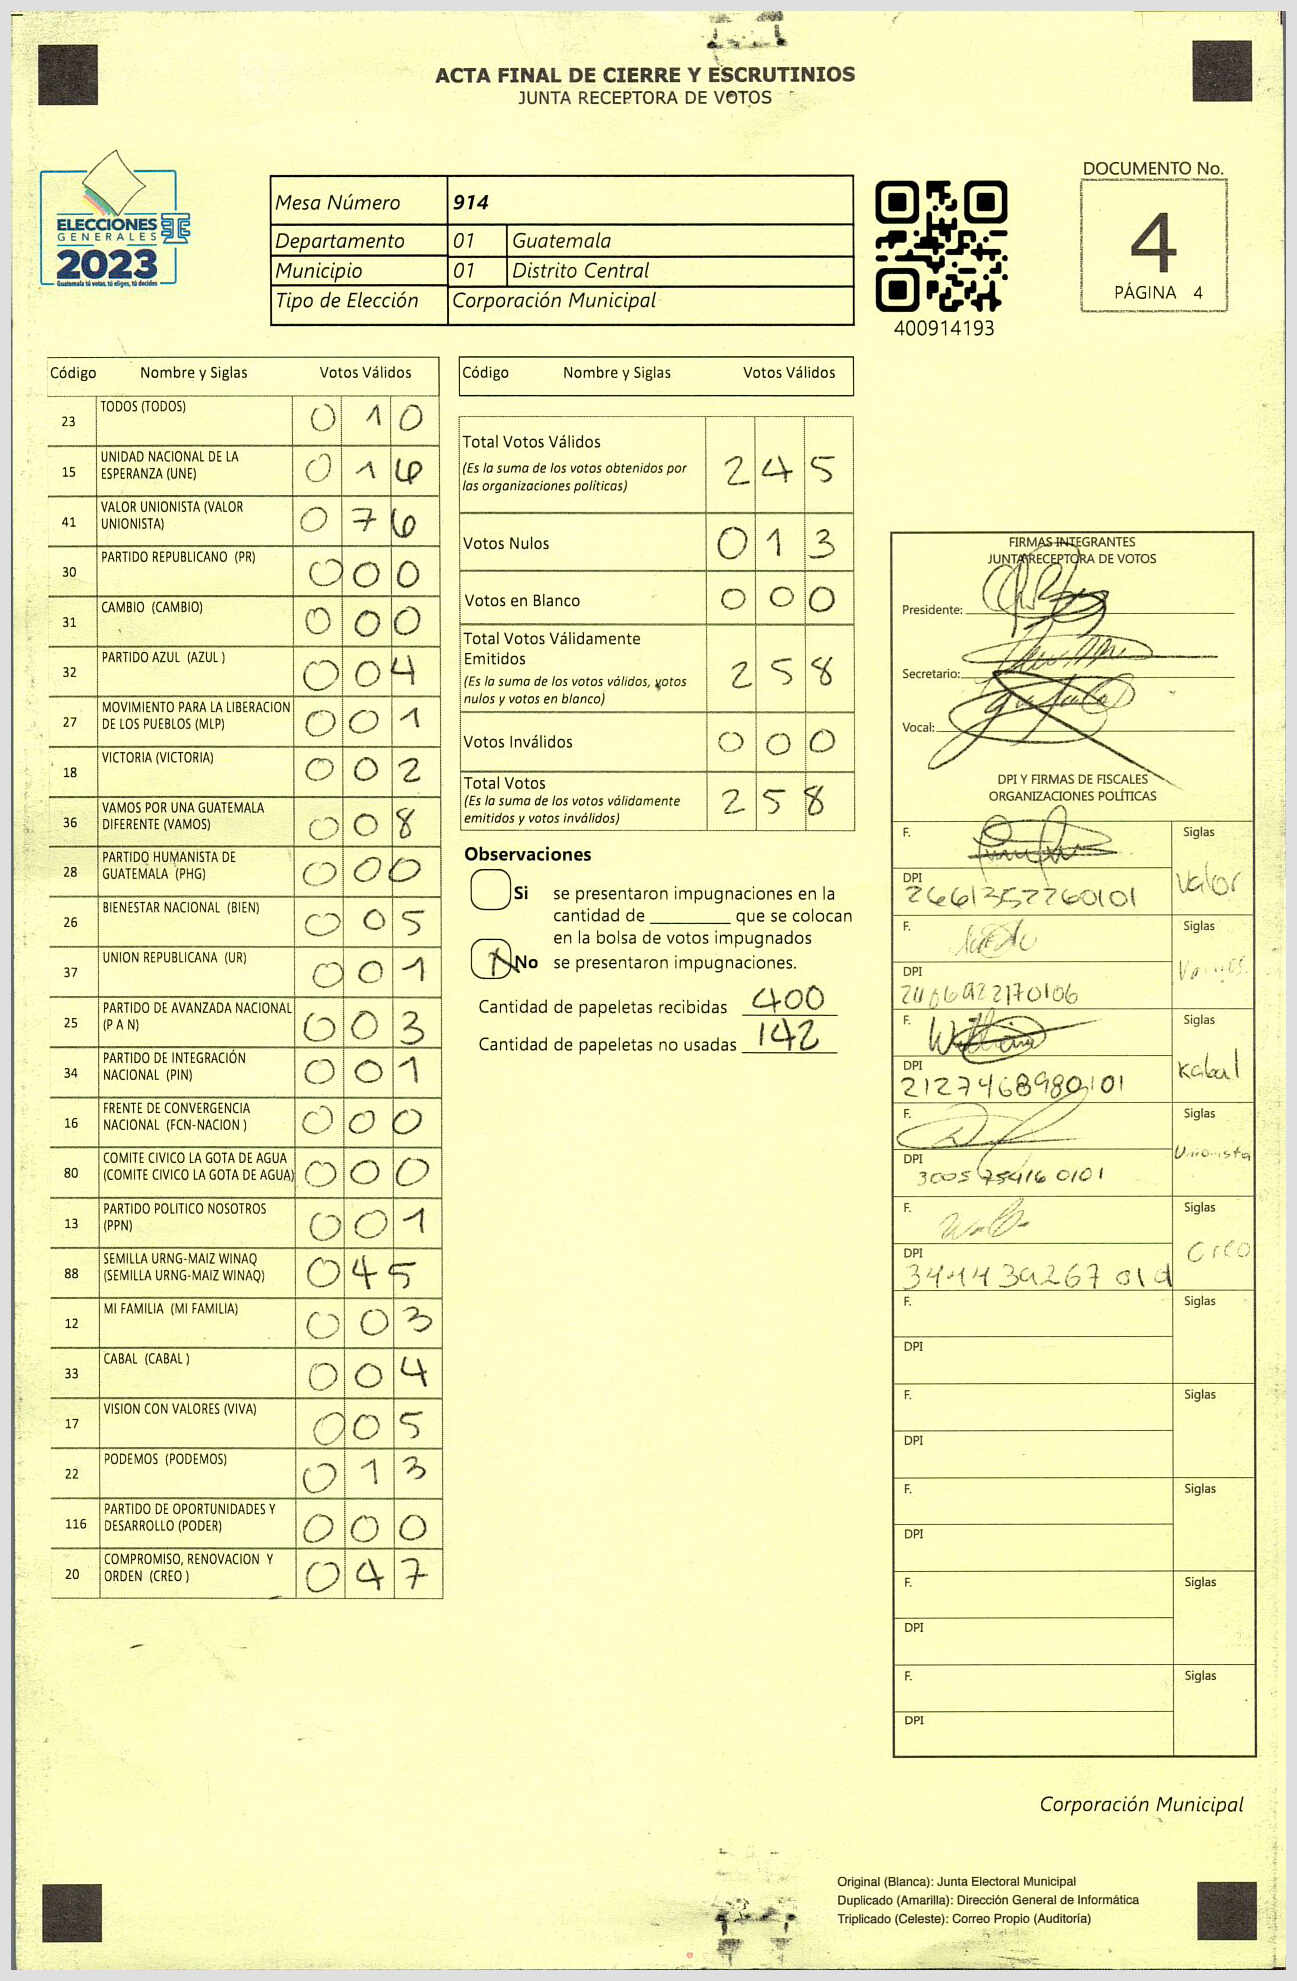 ACTA FINAL DE CIERRE Y ESCRUTINIOS
JUNTA RECEPTORA DE VOTOS
ELECCIONES
GENERALES
2023
Guatemala tú votas, tú eliges, tú decides
Mesa Número 914
Departamento 01 Guatemala
Municipio 01 Distrito Central
Tipo de Elección Corporación Municipal
400914193
DOCUMENTO No.
4
PÁGINA 4
Código Nombre y Siglas Votos Válidos
23 TODOS (TODOS) 0 1 0
15 UNIDAD NACIONAL DE LA
ESPERANZA (UNE) 0 1 6
41 VALOR UNIONISTA (VALOR
UNIONISTA) 0 7 6
30 PARTIDO REPUBLICANO (PR) 0 0 0
31 CAMBIO (CAMBIO) 0 0 0
32 PARTIDO AZUL (AZUL ) 0 0 4
27 MOVIMIENTO PARA LA LIBERACION
DE LOS PUEBLOS (MLP) 0 0 1
18 VICTORIA (VICTORIA) 0 0 2
36 VAMOS POR UNA GUATEMALA
DIFERENTE (VAMOS) 0 0 8
28 PARTIDO HUMANISTA DE
GUATEMALA (PHG) 0 0 0
26 BIENESTAR NACIONAL (BIEN) 0 0 5
37 UNION REPUBLICANA (UR) 0 0 1
25 PARTIDO DE AVANZADA NACIONAL
(P A N) 0 0 3
34 PARTIDO DE INTEGRACIÓN
NACIONAL (PIN) 0 0 1
16 FRENTE DE CONVERGENCIA
NACIONAL (FCN-NACION ) 0 0 0
80 COMITE CIVICO LA GOTA DE AGUA
(COMITE CIVICO LA GOTA DE AGUA) 0 0 0
13 PARTIDO POLITICO NOSOTROS
(PPN) 0 0 1
88 SEMILLA URNG-MAIZ WINAQ
(SEMILLA URNG-MAIZ WINAQ) 0 4 5
12 MI FAMILIA (MI FAMILIA) 0 0 3
33 CABAL (CABAL ) 0 0 4
17 VISION CON VALORES (VIVA) 0 0 5
22 PODEMOS (PODEMOS) 0 1 3
116 PARTIDO DE OPORTUNIDADES Y
DESARROLLO (PODER) 0 0 0
20 COMPROMISO, RENOVACION Y
ORDEN (CREO ) 0 4 7
Código Nombre y Siglas Votos Válidos
Total Votos Válidos
(Es la suma de los votos obtenidos por
las organizaciones políticas) 2 4 5
Votos Nulos 0 1 3
Votos en Blanco 0 0 0
Total Votos Válidamente
Emitidos
(Es la suma de los votos válidos, votos
nulos y votos en blanco) 2 5 8
Votos Inválidos 0 0 0
Total Votos
(Es la suma de los votos válidamente
emitidos y votos inválidos) 2 5 8
Observaciones
Si se presentaron impugnaciones en la
cantidad de _________ que se colocan
en la bolsa de votos impugnados
X No se presentaron impugnaciones.
Cantidad de papeletas recibidas 400
Cantidad de papeletas no usadas 142
FIRMAS INTEGRANTES
JUNTA RECEPTORA DE VOTOS
Presidente:
Secretario:
Vocal:
DPI Y FIRMAS DE FISCALES
ORGANIZACIONES POLÍTICAS
F. Siglas
Valor
DPI
2661352760101
F. Siglas
Vamos.
DPI
F. Siglas
Kabal
DPI
2127468980101
F. Siglas
Unionista
DPI
F. Siglas
Creo
DPI
F. Siglas
DPI
F. Siglas
DPI
F. Siglas
DPI
F. Siglas
DPI
F. Siglas
DPI
Corporación Municipal
Original (Blanca): Junta Electoral Municipal
Duplicado (Amarilla): Dirección General de Informática
Triplicado (Celeste): Correo Propio (Auditoría)